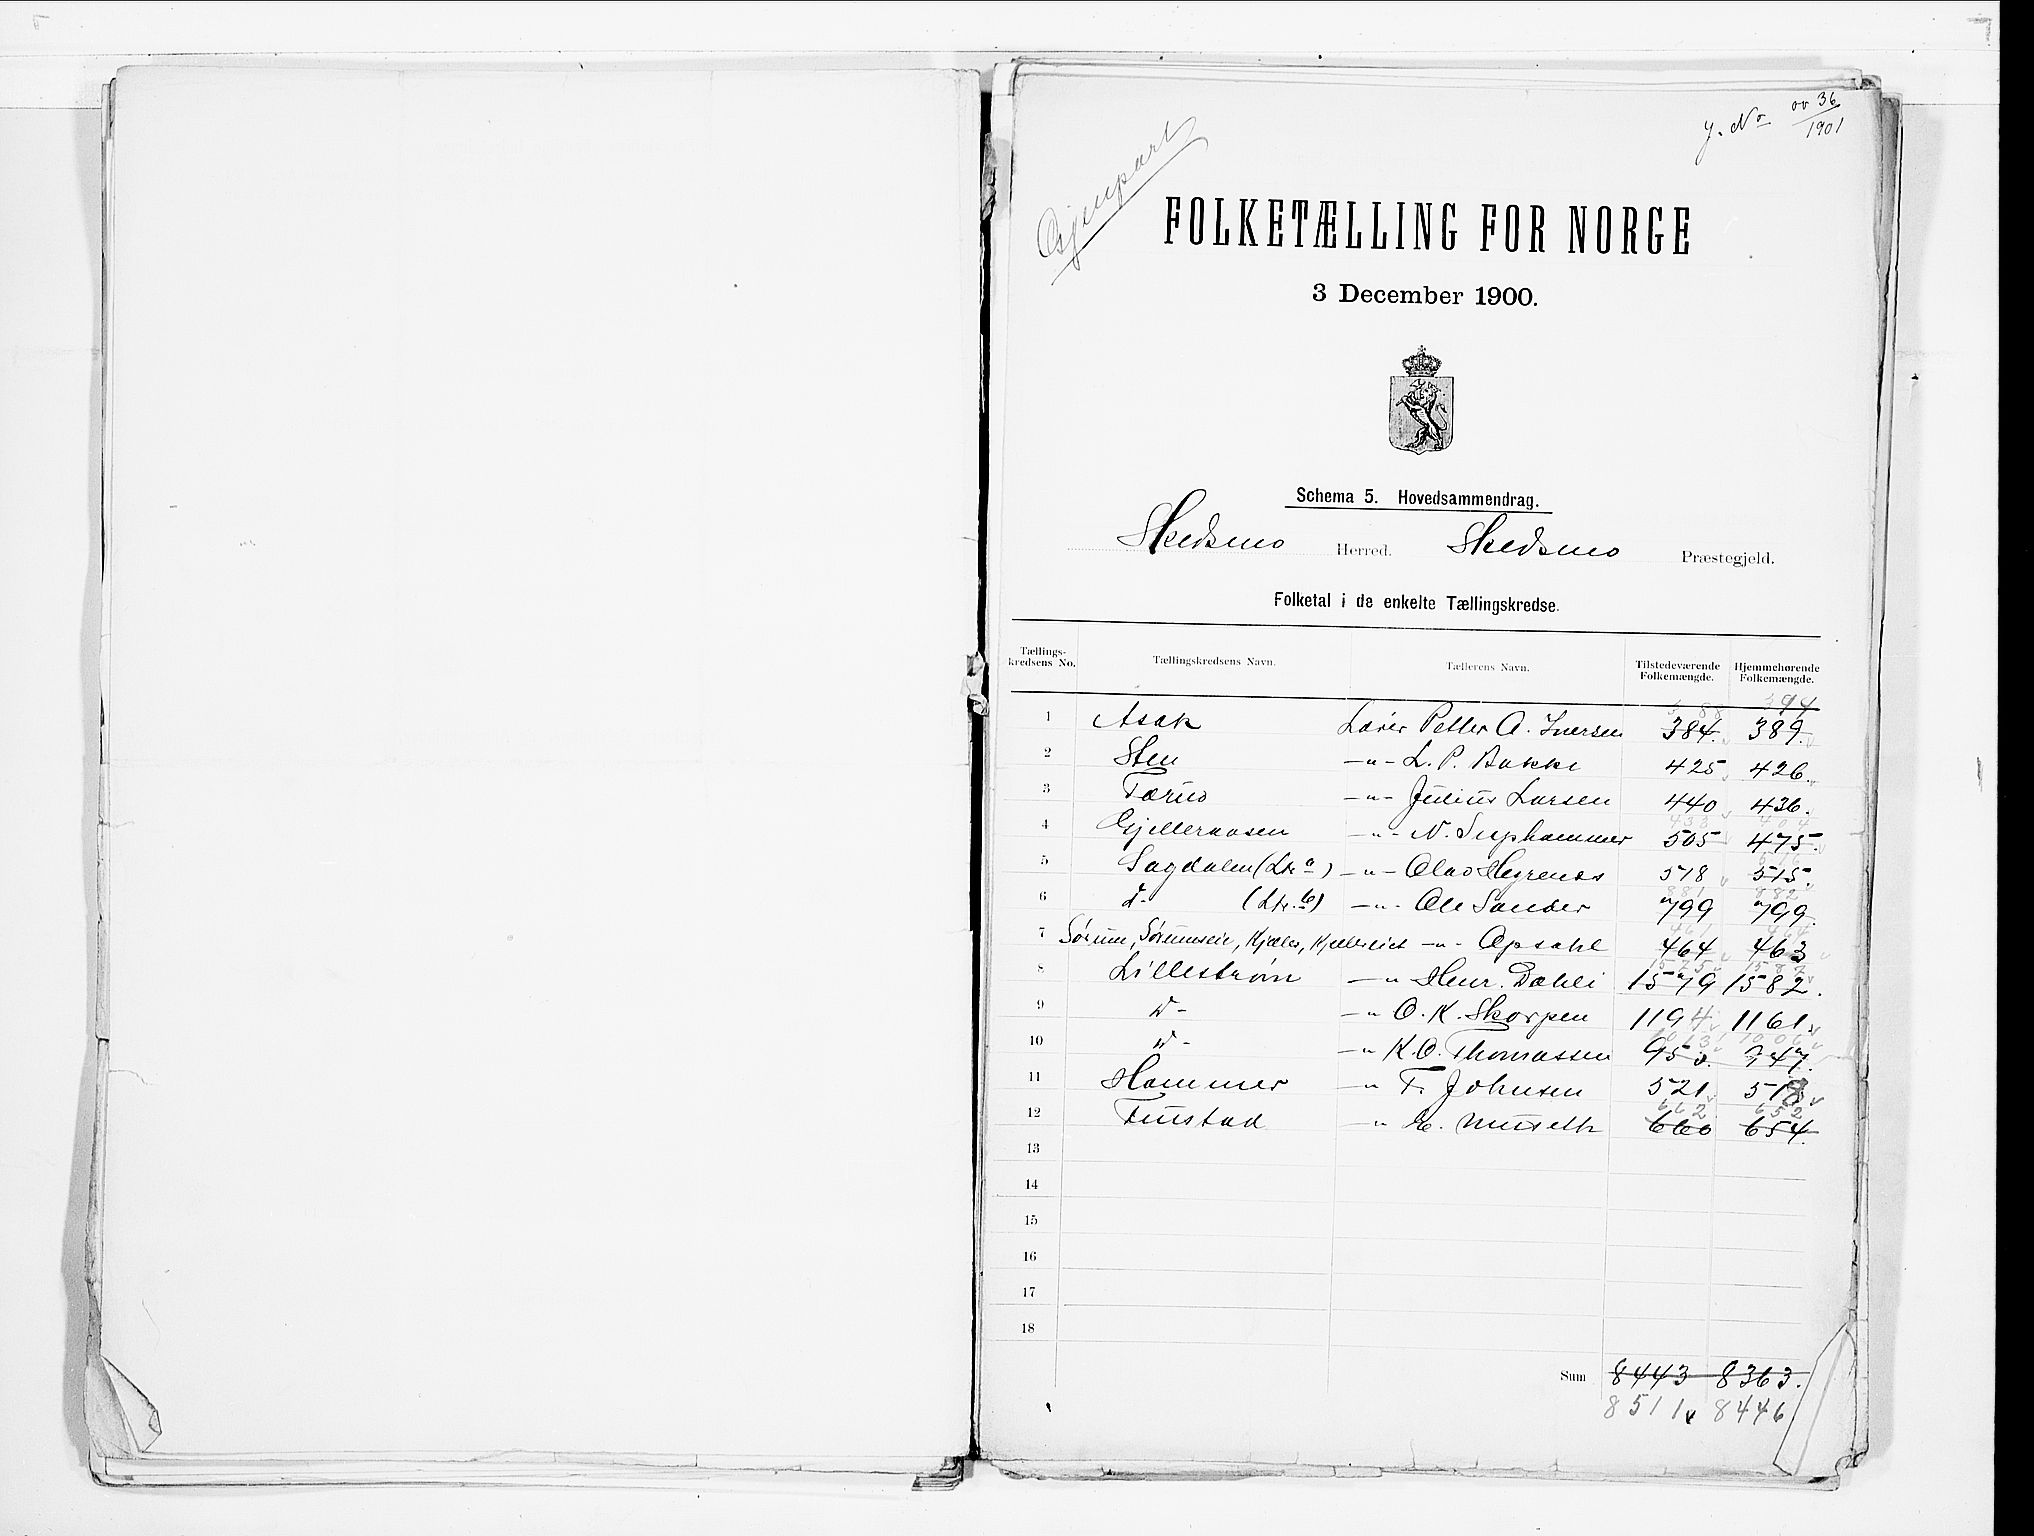 J. No ov 36/1901
Gjenpart
FOLKETÆLLING FOR NORGE
3 December 1900.
Schema 5. Hovedsammendrag.
Skedsmo Herred. Skedsmo Præstegjeld.
Folketal i de enkelte Tællingskredse.
Tællings-kredsens No. Tællingskredsens Navn. Tællerens Navn. Tilstedeværende Folkemængde. Hjemmehørende Folkemængde.
388 394
1 Asak Lærer Petter A. Iversen 384. 389.
2 Sten —"— L. P. Bakke 425 426.
3 Tærud —"— Julius Larsen 440 436.
433 404
4 Gjelleraasen —"— N. 505 475.
516
5 Sagdalen (Ltr a) —"— Olav 518 515.
881 882
6 do- (Ltr. b) —"— Ole Sander 799 799.
461 464
7 Sørum, Kjeller, —"— Opsahl 464 463
1575 1587
8 Lillestrøm —" Henr. Dæhli 1579 1582.
9 do- —" O. K. Skorpen 1194 1161
1013 1006
10 do- —" K. O. Thomassen 950. 947.
11 Hammer —" F. Johnsen 521 518
662 652
12 Tustad —" E. Museth 660 654.
13
14
15
16
17
18
Sum 8443 8363.
8511 8446